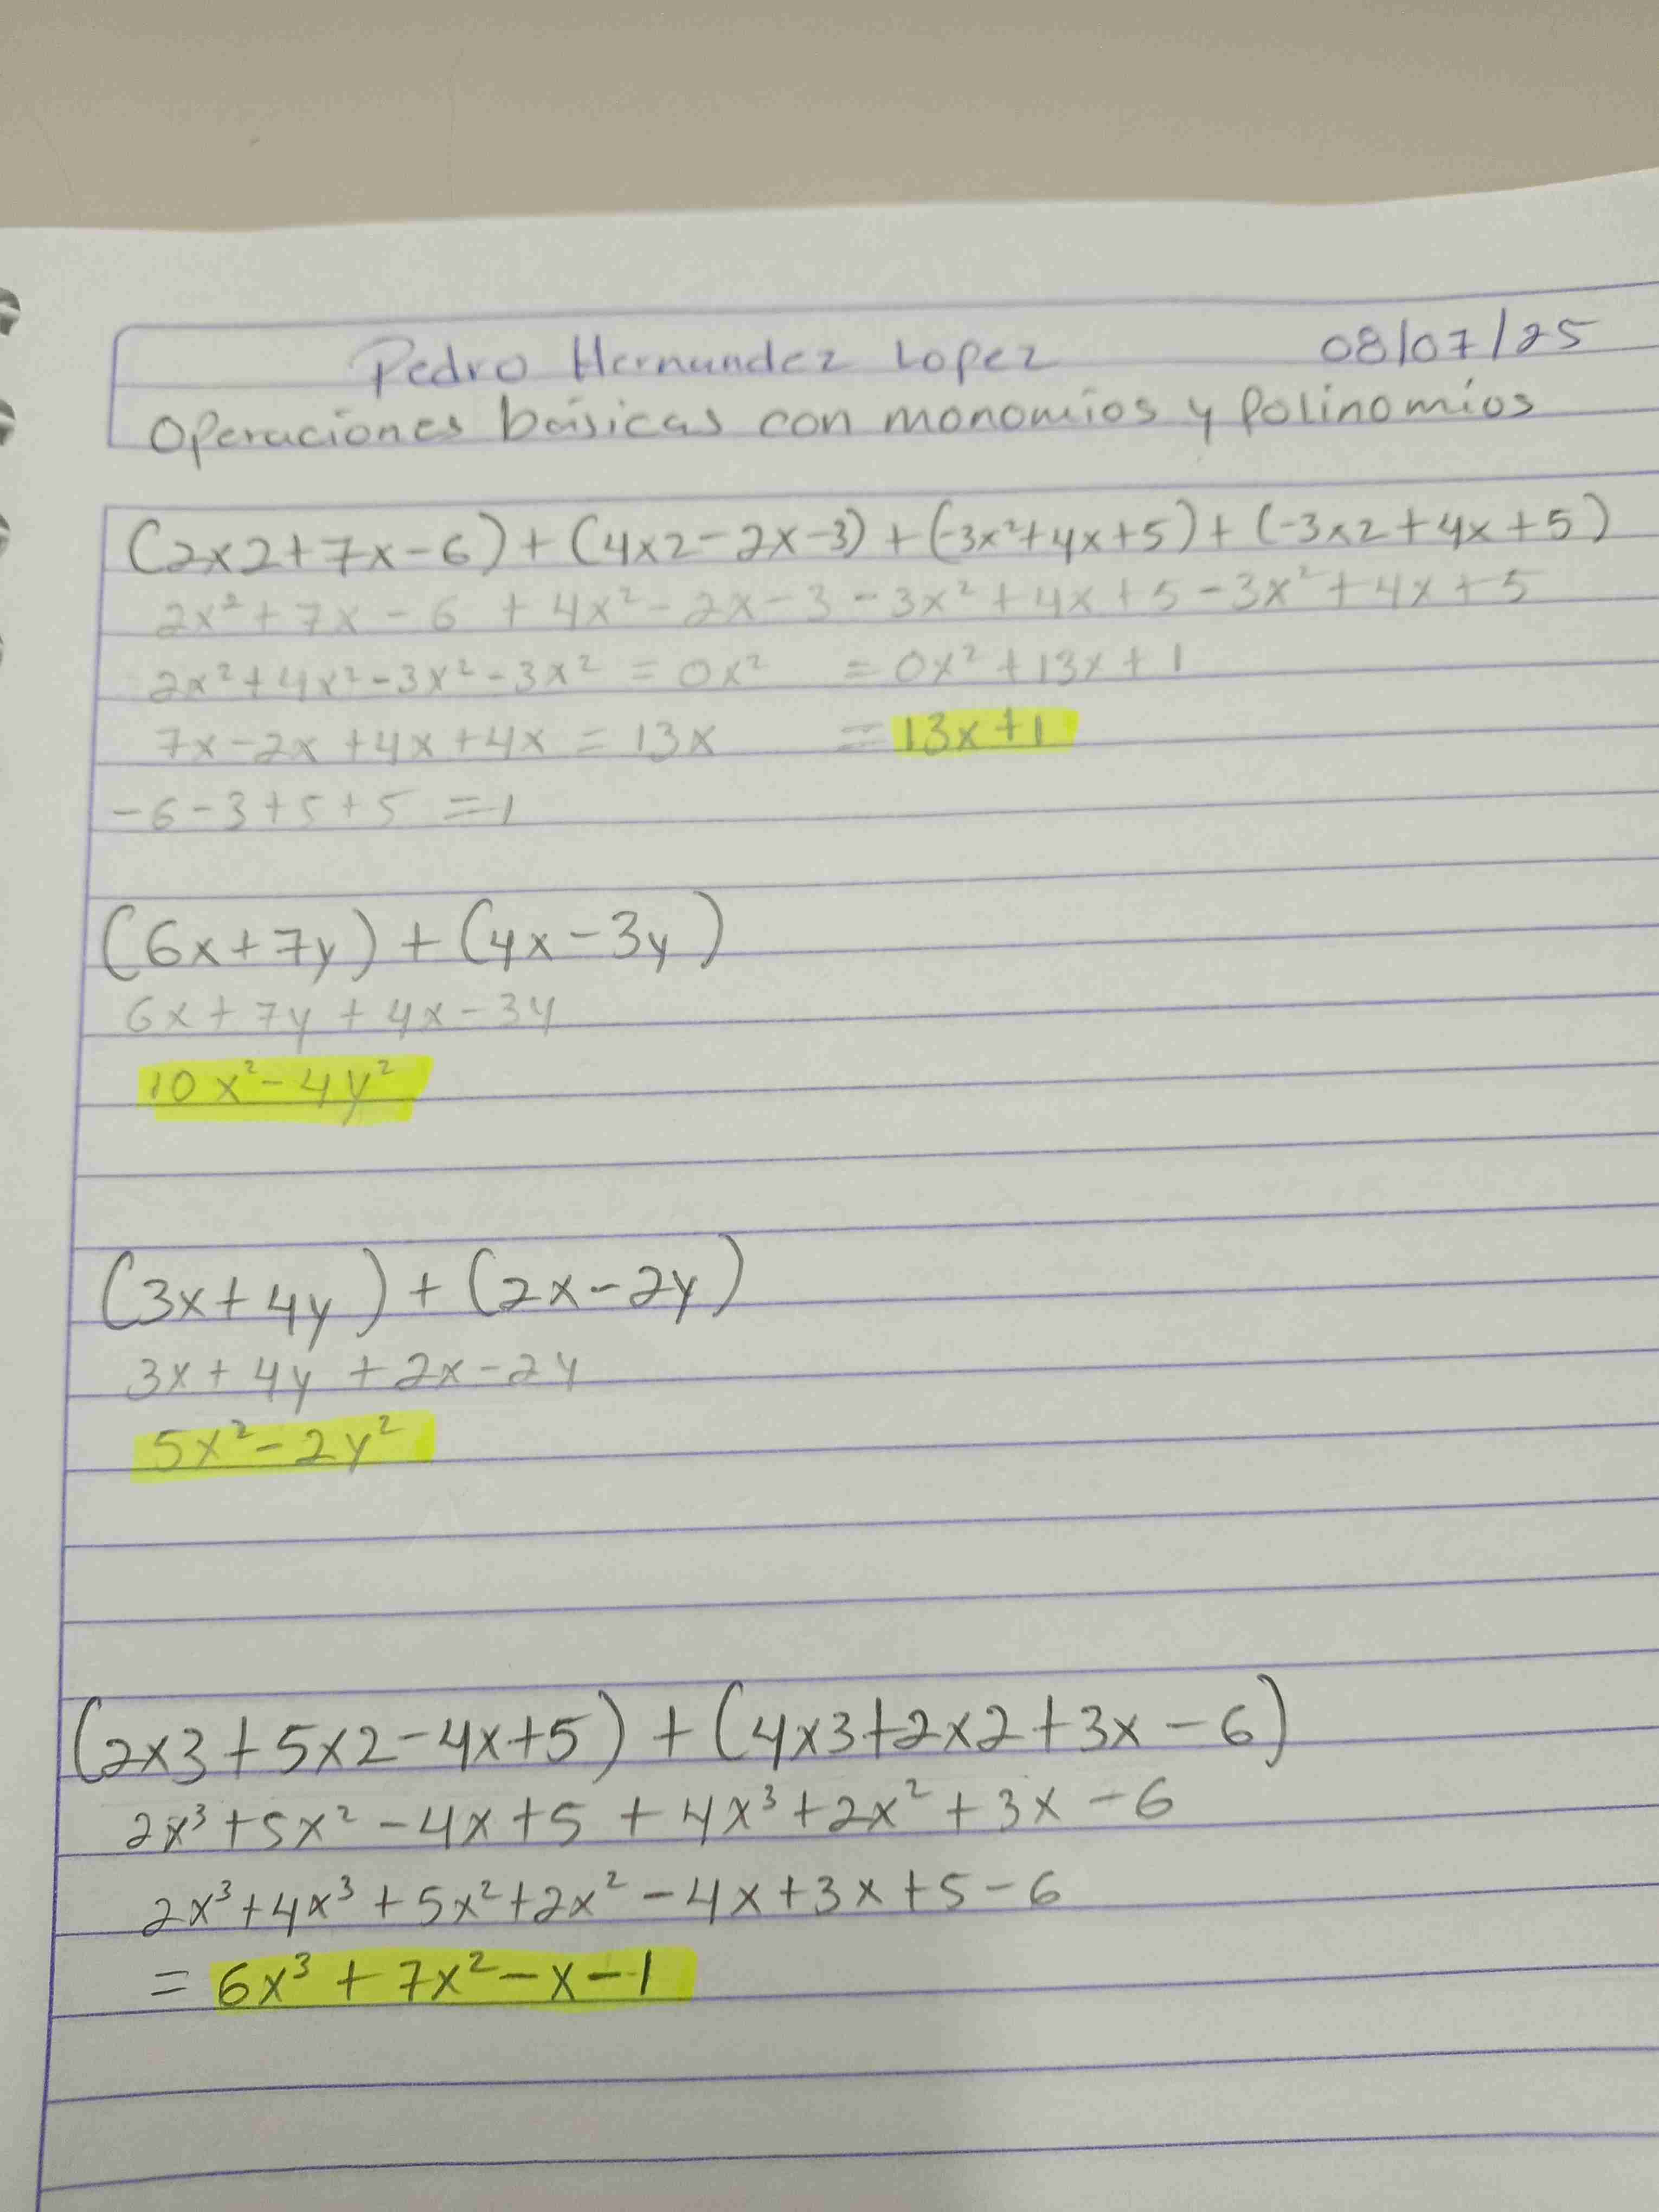 Pedro Hernandez Lopez 08/07/25
Operaciones básicas con monomios y polinomios
(2x2+7x-6)+(4x2-2x-3)+(-3x²+4x+5)+(-3x2+4x+5)
2x²+7x-6+4x²-2x-3-3x²+4x+5-3x²+4x+5
2x²+4x²-3x²-3x²=0x² =0x²+13x+1
7x-2x+4x+4x=13x =13x+1
-6-3+5+5=1
(6x+7y)+(4x-3y)
6x+7y+4x-3y
10x²-4y²
(3x+4y)+(2x-2y)
3x+4y+2x-2y
5x²-2y²
(2x3+5x2-4x+5)+(4x3+2x2+3x-6)
2x³+5x²-4x+5+4x³+2x²+3x-6
2x³+4x³+5x²+2x²-4x+3x+5-6
=6x³+7x²-x-1